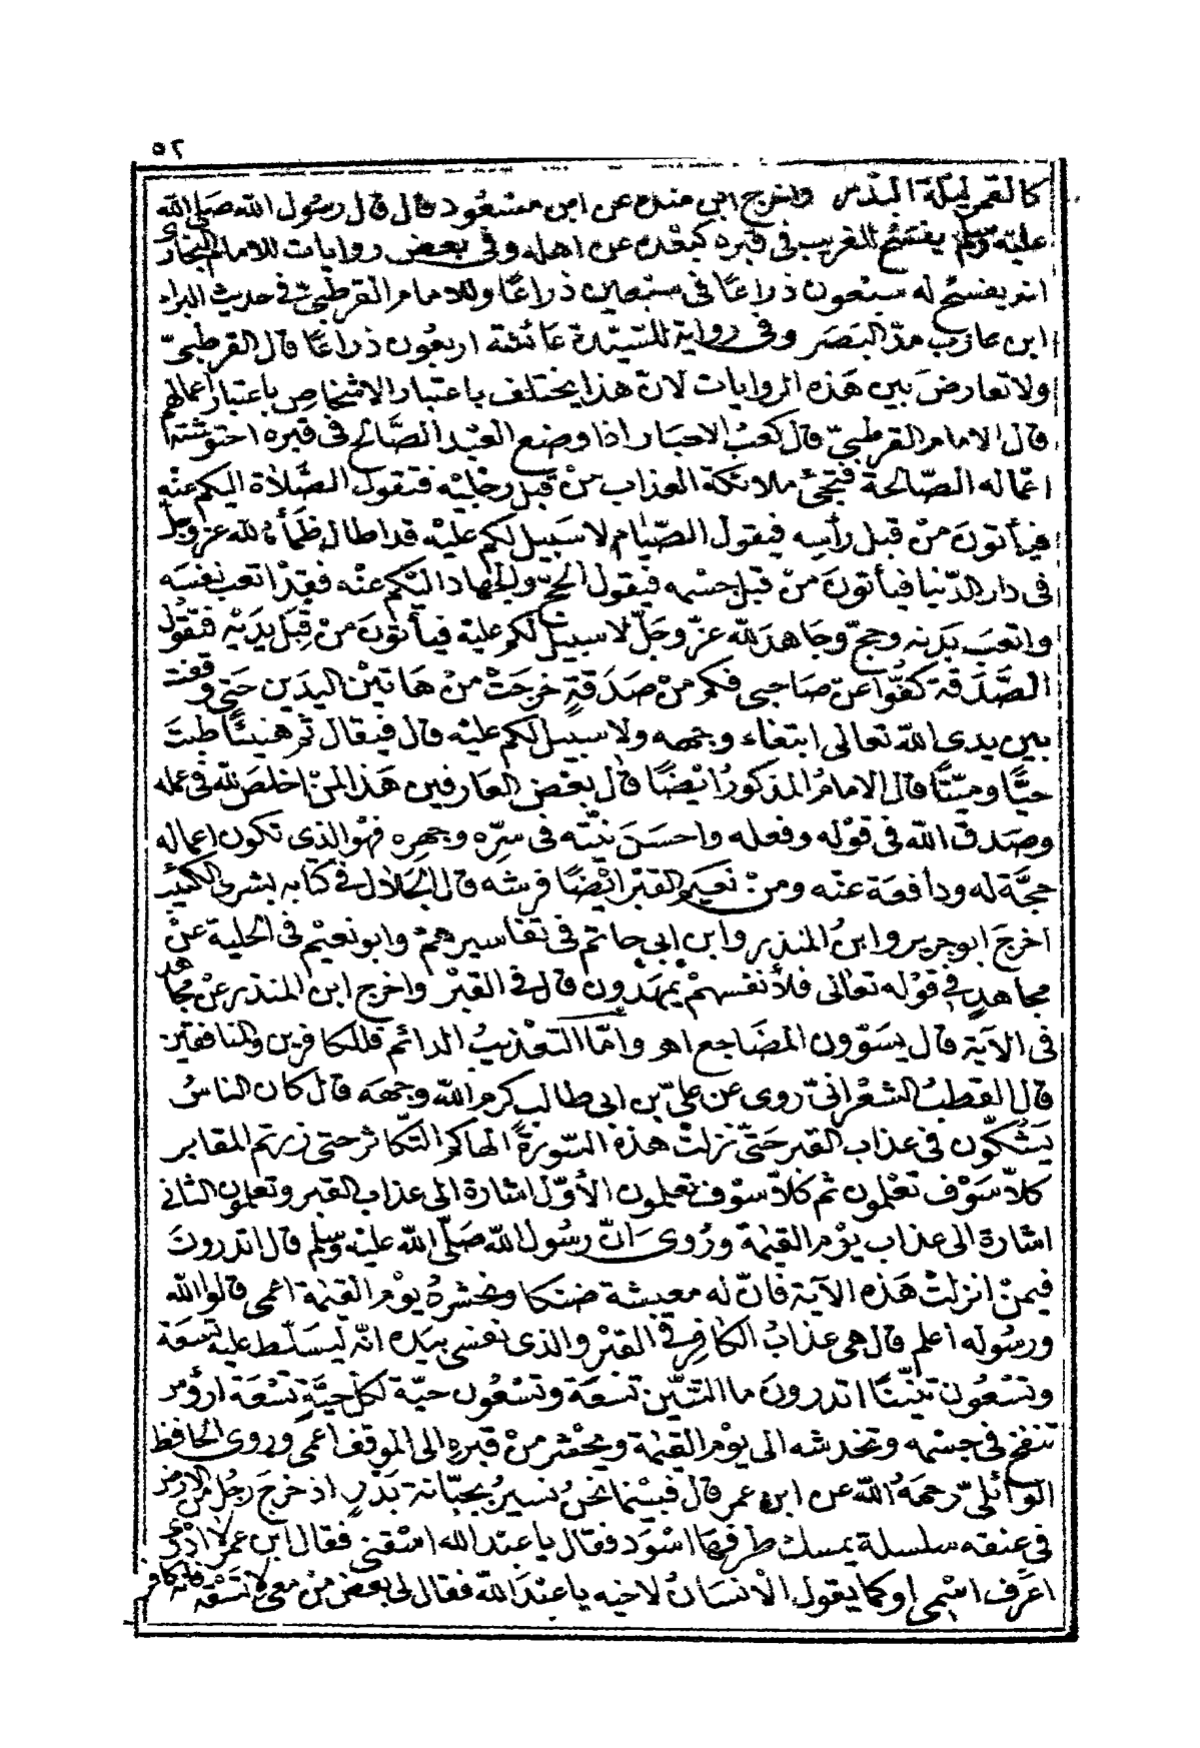 ٥٢
كالقمر ليلة البدر واخرج ابن منده عن ابن مسعود قال قال رسول الله صلى الله
عليه وسلم يفسح للغريب في قبره كبعده عن اهله وفي بعض روايات للامام البخاري
انه يفسح له سبعون ذراعًا في سبعين ذراعًا وللامام القرطبيّ في حديث البراء
ابن عازب مدّ البَصَر وفي رواية للسّيّدة عائشة اربعُون ذراعًا قال القرطبيّ
ولا تعارضَ بين هَذه الروايات لانّ هذا يختلف باعتبار الاشخاص باعتبار أعمالهم
قال الامام القرطبيّ قال كعبُ الاحبار اذا وضع العَبْد الصَّالح في قبره احتوشته
اعماله الصّالحة فتجئ ملائكة العذاب منْ قبل رجليْه فتقول الصَّلاة اليكم عنْه
فيأتونَ منْ قبل رأسِه فيقول الصّيام لا سَبيل لكم عليْه قد اطال ظمَأه لله عزّ وجلّ
في دار الدّنيا فيأتونَ منْ قبل جسْمه فيقول الحجّ والجهاد اليْكم عنْه فقدْ اتعب نفسَه
واتعبَ بَدَنه وحجّ وجَاهدَ لله عزّ وجَلّ لا سبيلَ لكم عليه فيأتونَ منْ قِبَل يَدَيْه فتقولُ
الصَّدَقة كفّوا عنْ صَاحبي فكم منْ صَدَقةٍ خرجَتْ منْ هَاتيْن اليدَين حَتى وقعَتْ
بين يدى الله تعالى ابتغاء وجهه ولا سبيل لكم عليْه قال فيقال ثم هنيئًا طبتَ
حيًّا وميّتًا قال الامامُ المذكورُ ايْضًا قال بعْض العَارفين هَذا لمنْ اخلصَ لله في عمله
وصَدقَ الله في قوْله وفعله واحسَنَ نيّته في سِرّه وجهرِه فهْو الذى تكون اعماله
حجّة له ودافعَة عنْه ومنْ نعيم القبْر ايْضًا فرشه قال الجلال في كتابه بشرى الكئيْب
اخرجَ ابو جرير وابنُ المنذِر وابن ابي حاتم في تفاسيرهمْ وابو نعيْم في الحلية عنْ
مجاهدٍ في قوْله تعالى فلأنفسهمْ يمهَدون قال في القبْر واخرج ابن المنذر عنْ مجاهد
في الآية قال يسَوّون المضَاجع اهـ وامّا التعْذيبُ الدائم فللكافرين والمنافقين
قال القطبُ الشعْرانيّ روى عن عليّ بن ابي طالب كرم الله وجهَه قال كان الناسُ
يَشُكّون في عذاب القبر حَتّى نزلتْ هذه السّورةُ الهاكم التّكاثر حتى زرتم المقابر
كلاّ سَوْف تعْلمون ثم كلاّ سوْف تعلمون الأوّل اشارة الى عذاب القبر وتعلمون الثاني
اشارة الى عذاب يوْم القيٰمة ورُوىَ انّ رسُول الله صَلّى الله عليْه وسلم قال اتدرونَ
فيمنْ انزلتْ هَذه الآية فانّ له معيشة ضنكا ونحشرهُ يوْم القيٰمة اعمى قالوا الله
ورسُوله أعلم قال هى عذابُ الكافِر في القبْر والذى نفسى بيَده انّه ليسَلّط عليه تسعَة
وتسْعُون تنّينًا اتدرونَ ما التنّين تسْعَة وتسْعُون حيّة لكلّ حيَّة تسْعَة ارؤس
تنفخ في جسْمه وتخدشه الى يوْم القيٰمة ويحْشر منْ قبرِه الى الموقف أعمى وروى الحافظ
الوَائليّ رَحمَهُ الله عن ابن عمر قال فبيْنما نحنُ نسيرُ بجبّانة بَدْرٍ اذ خرجَ رجُل من الارض
في عنقه سلسلة يمسك طرفهَا اسْوَد فقال يا عبْد الله اسْقني فقال ابن عمر لا ادْرى
اعَرف اسْمى او كما يقول الانسَانُ لاخيه يا عبْدَ الله فقال لى بعْض منْ معى لا تسْقه فانه كافر